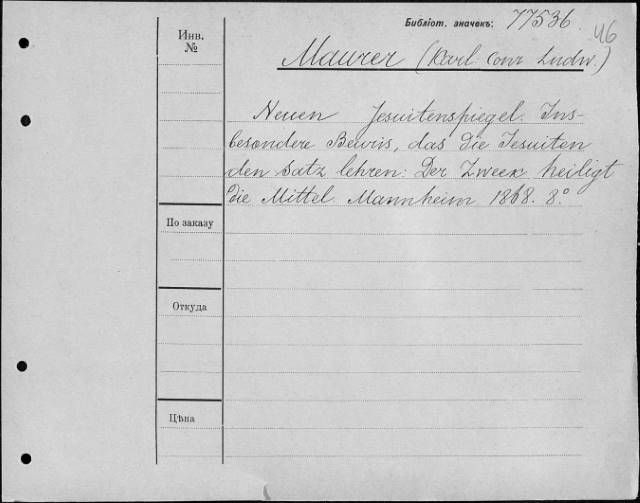 Библіот. значекъ: 77536
46
Инв.
№
Maurer (Karl Conr Ludw.)
Neuen Jesuitenspiegel. Ins-
besondere Bewis, das die Jesuiten
den satz lehren: Der Zweck heiligt
die Mittel Mannheim 1868. 8°
По заказу
Откуда
Цѣна